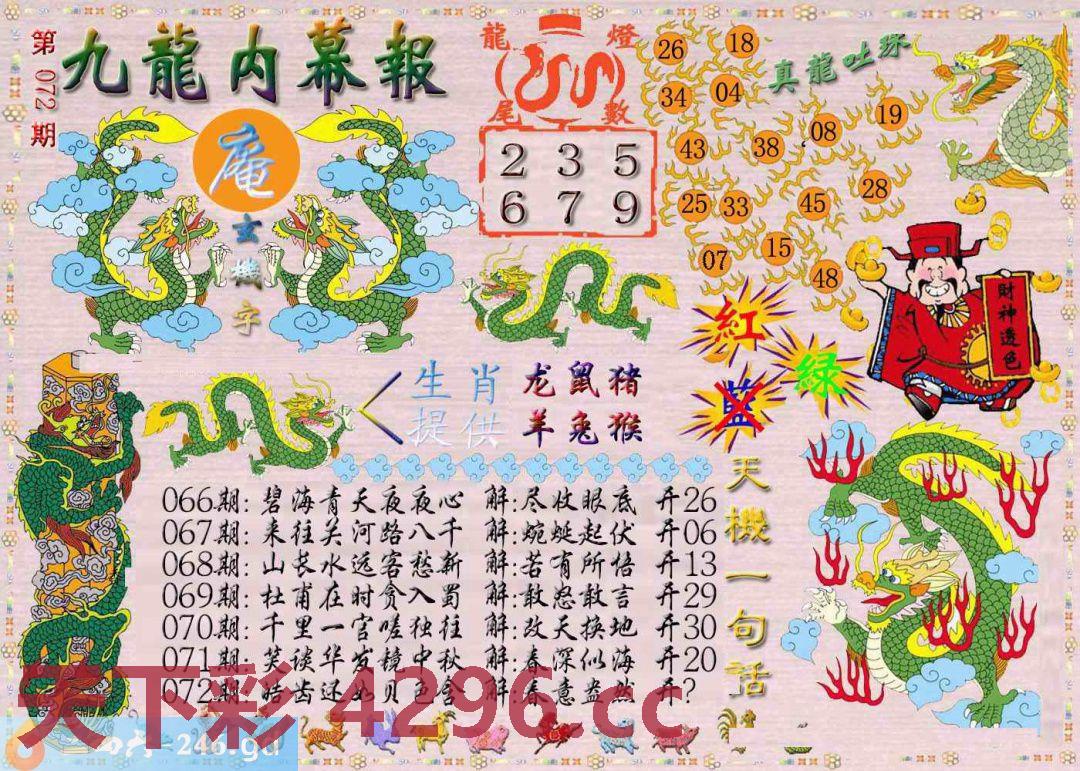 第072期
九龍内幕報
庵
玄機字
龍燈
尾數
2 3 5
6 7 9
真龍吐珠
26 18
34 04
43 38 08 19
25 33 45 28
07 15 48
財神透色
紅
藍
绿
生肖
提供
龙鼠猪
羊兔猴
天機一句話
066期: 碧海青天夜夜心 解:尽收眼底 开26
067期: 来往关河路八千 解:蜿蜒起伏 开06
068期: 山长水远客愁新 解:若有所悟 开13
069期: 杜甫在时贪入蜀 解:敢怒敢言 开29
070期: 千里一官嗟独往 解:改天换地 开30
071期: 笑谈华发镜中秋 解:春深似海 开20
072期: 皓齿还如贝色含 解:春意盎然 开?
天下彩 4296.cc
=246.gd